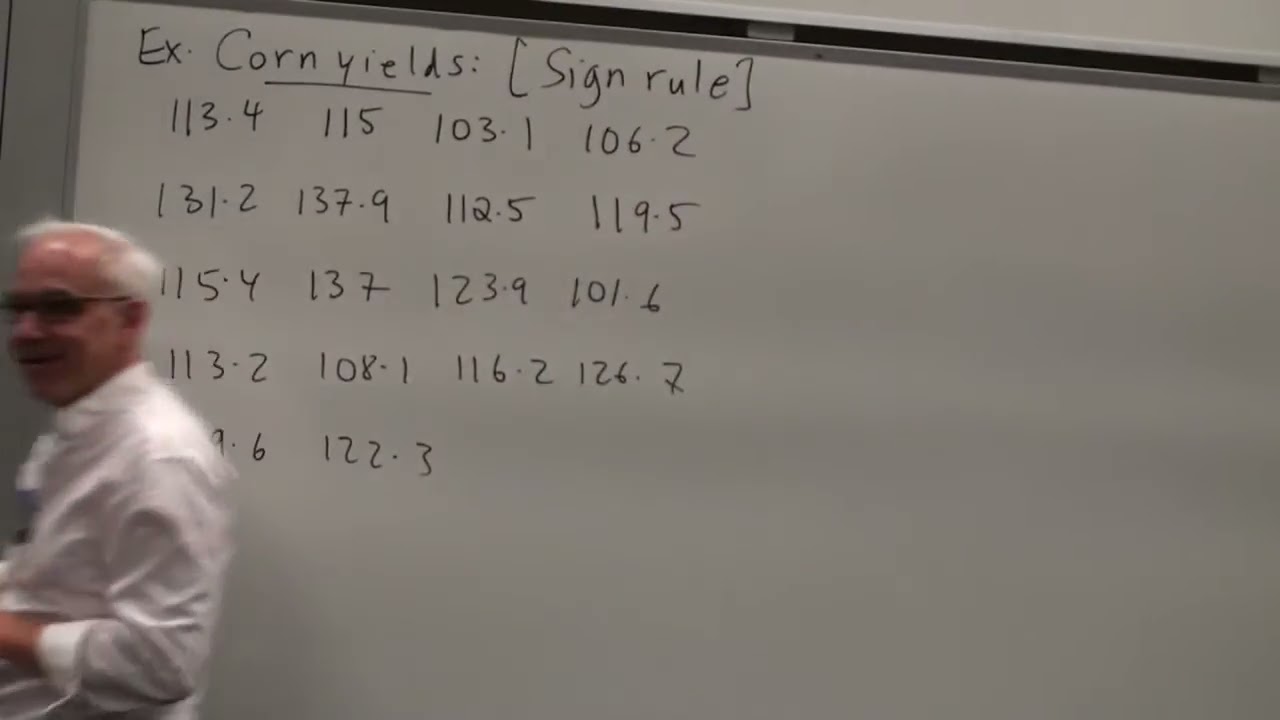 Ex. Corn yields: [Sign rule]
113.4 115 103.1 106.2
131.2 137.9 112.5 119.5
115.4 137 123.9 101.6
113.2 108.1 116.2 126.7
9.6 122.3